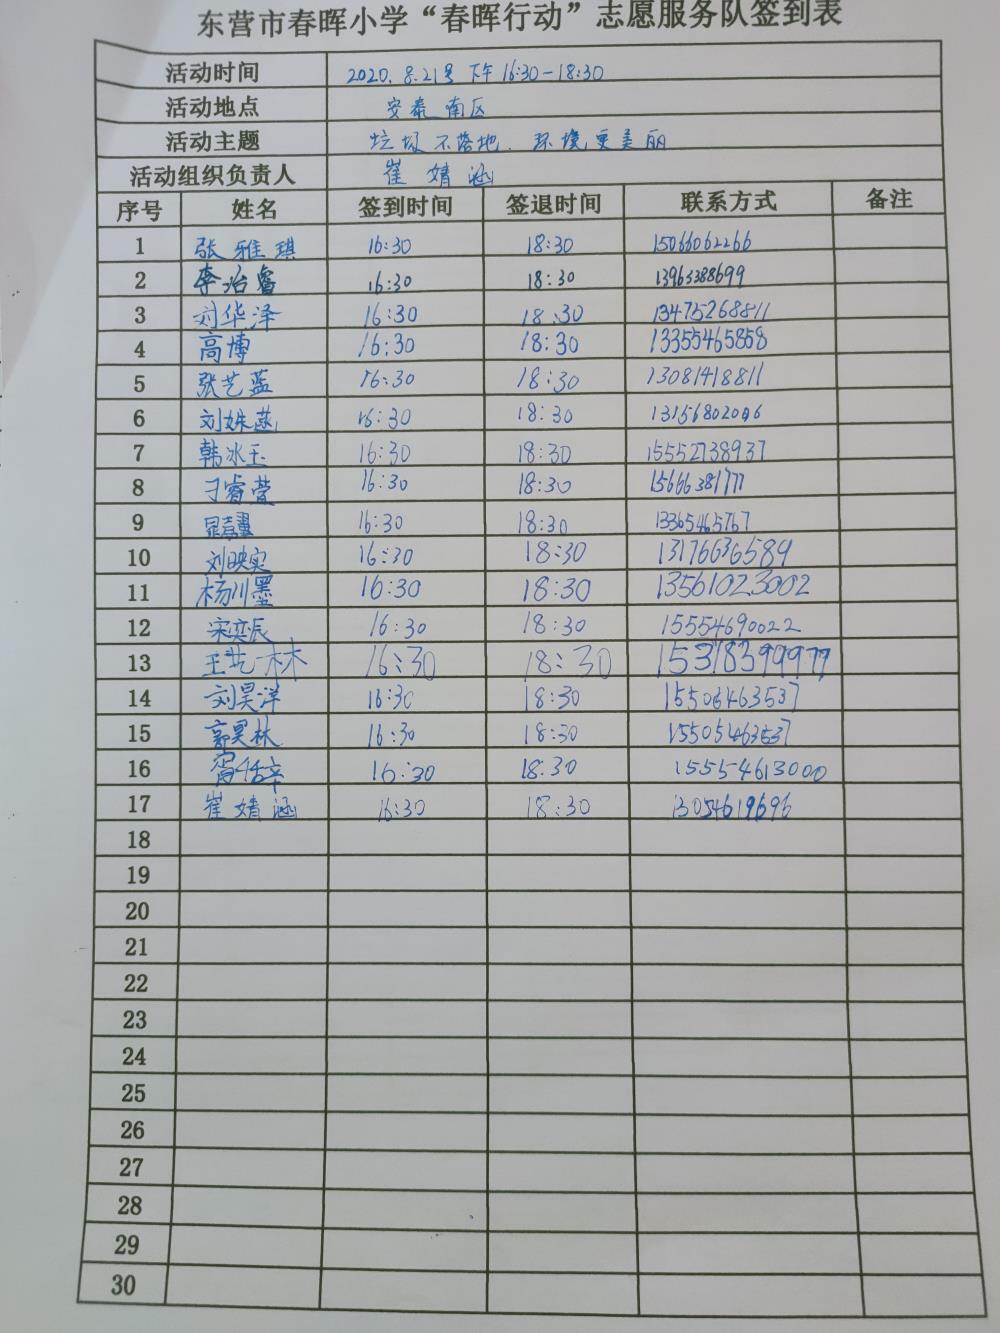 东营市春晖小学“春晖行动”志愿服务队签到表
活动时间 2020.8.21号 下午 16:30-18:30
活动地点 安泰南区
活动主题 垃圾不落地.环境更美丽
活动组织负责人 崔婧涵
序号 姓名 签到时间 签退时间 联系方式 备注
1 张雅琪 16:30 18:30 15066062266
2 李治睿 16:30 18:30 13963388699
3 刘华泽 16:30 18:30 13475268811
4 高博 16:30 18:30 13355465858
5 张艺蓝 16:30 18:30 13081418811
6 刘姝菡 16:30 18:30 13156802006
7 韩冰玉 16:30 18:30 15552738937
8 刁睿莹 16:30 18:30 15666381777
9 16:30 18:30 13365465767
10 刘映实 16:30 18:30 13176636589
11 杨川墨 16:30 18:30 13561023002
12 宋奕辰 16:30 18:30 15554690022
13 王艺林 16:30 18:30 15318399977
14 刘昊洋 16:30 18:30 15506463537
15 郭昊林 16:30 18:30 15505463537
16 16:30 18:30 15554613000
17 崔婧涵 16:30 18:30 13054619696
18
19
20
21
22
23
24
25
26
27
28
29
30